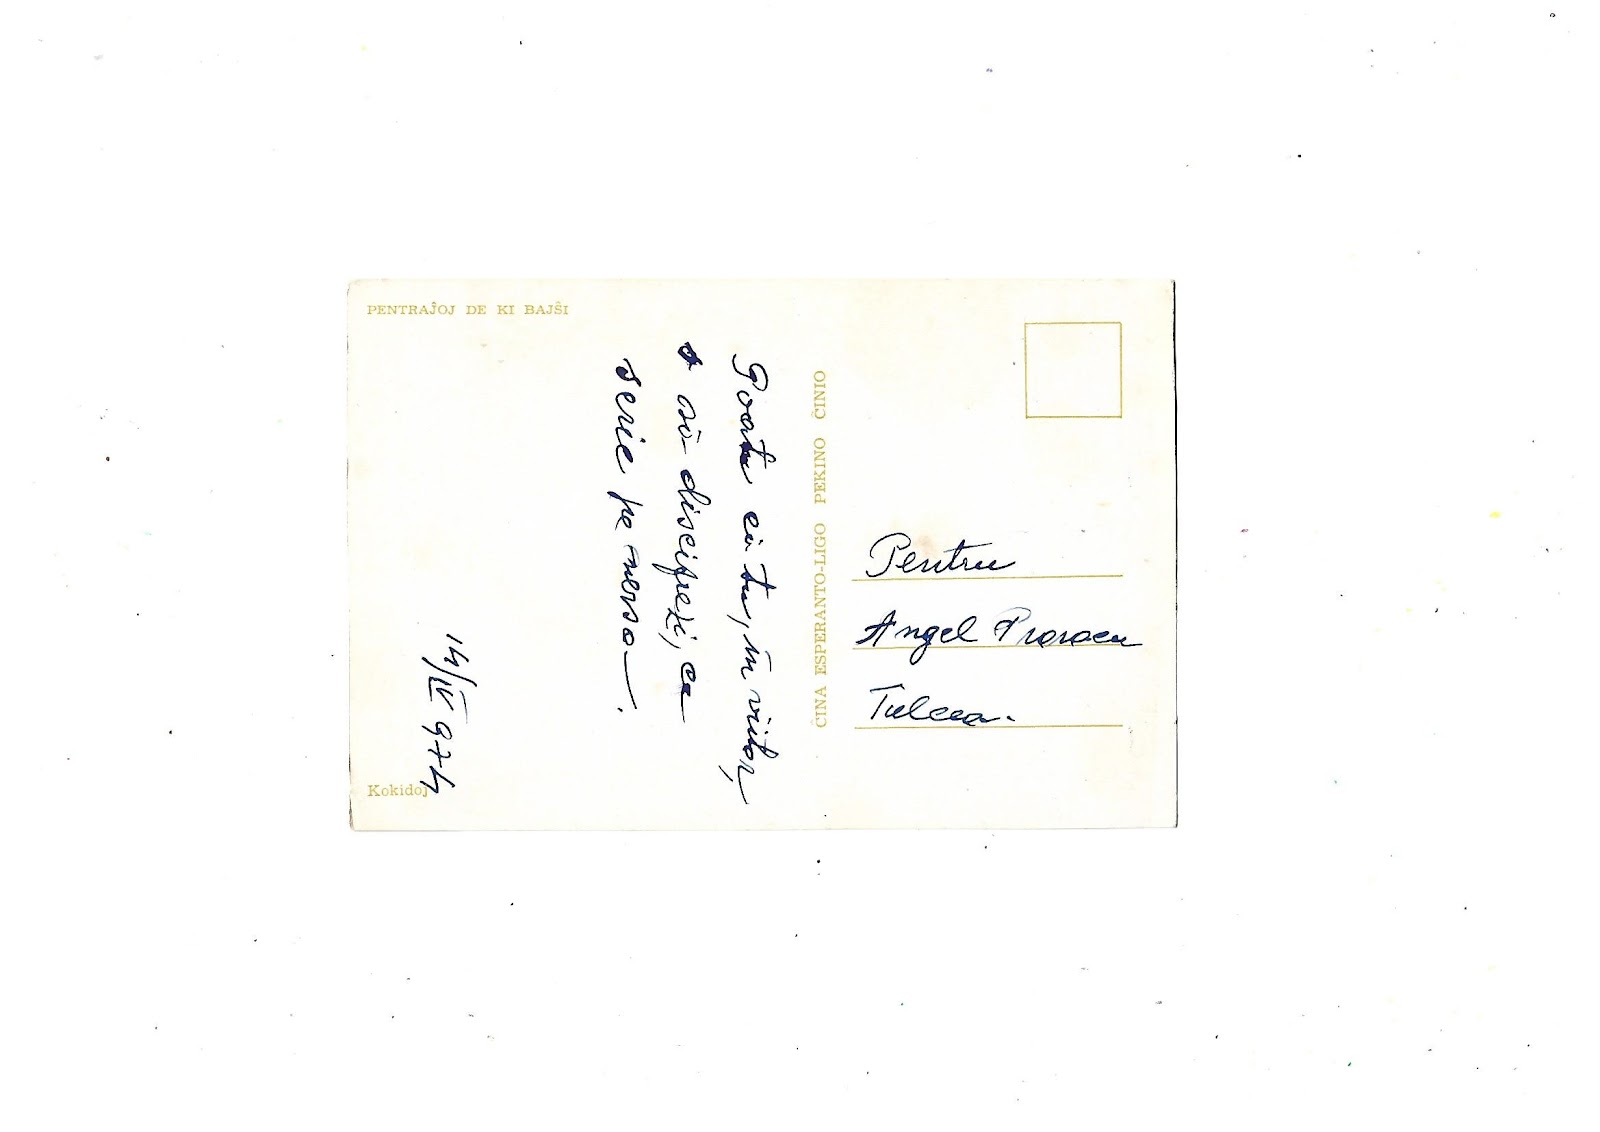 PENTRAĴOJ DE KI BAJŜI
Poate că tu, în viitor,
să discifrezi, ca
serie pe mersa.
14/IV 974
Kokidoj
ĈINA ESPERANTO-LIGO PEKINO ĈINIO
Pentru
Angel Prorocu
Tulcea.